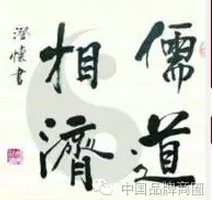 儒道
相濟
澄懷書
中国品牌商圈